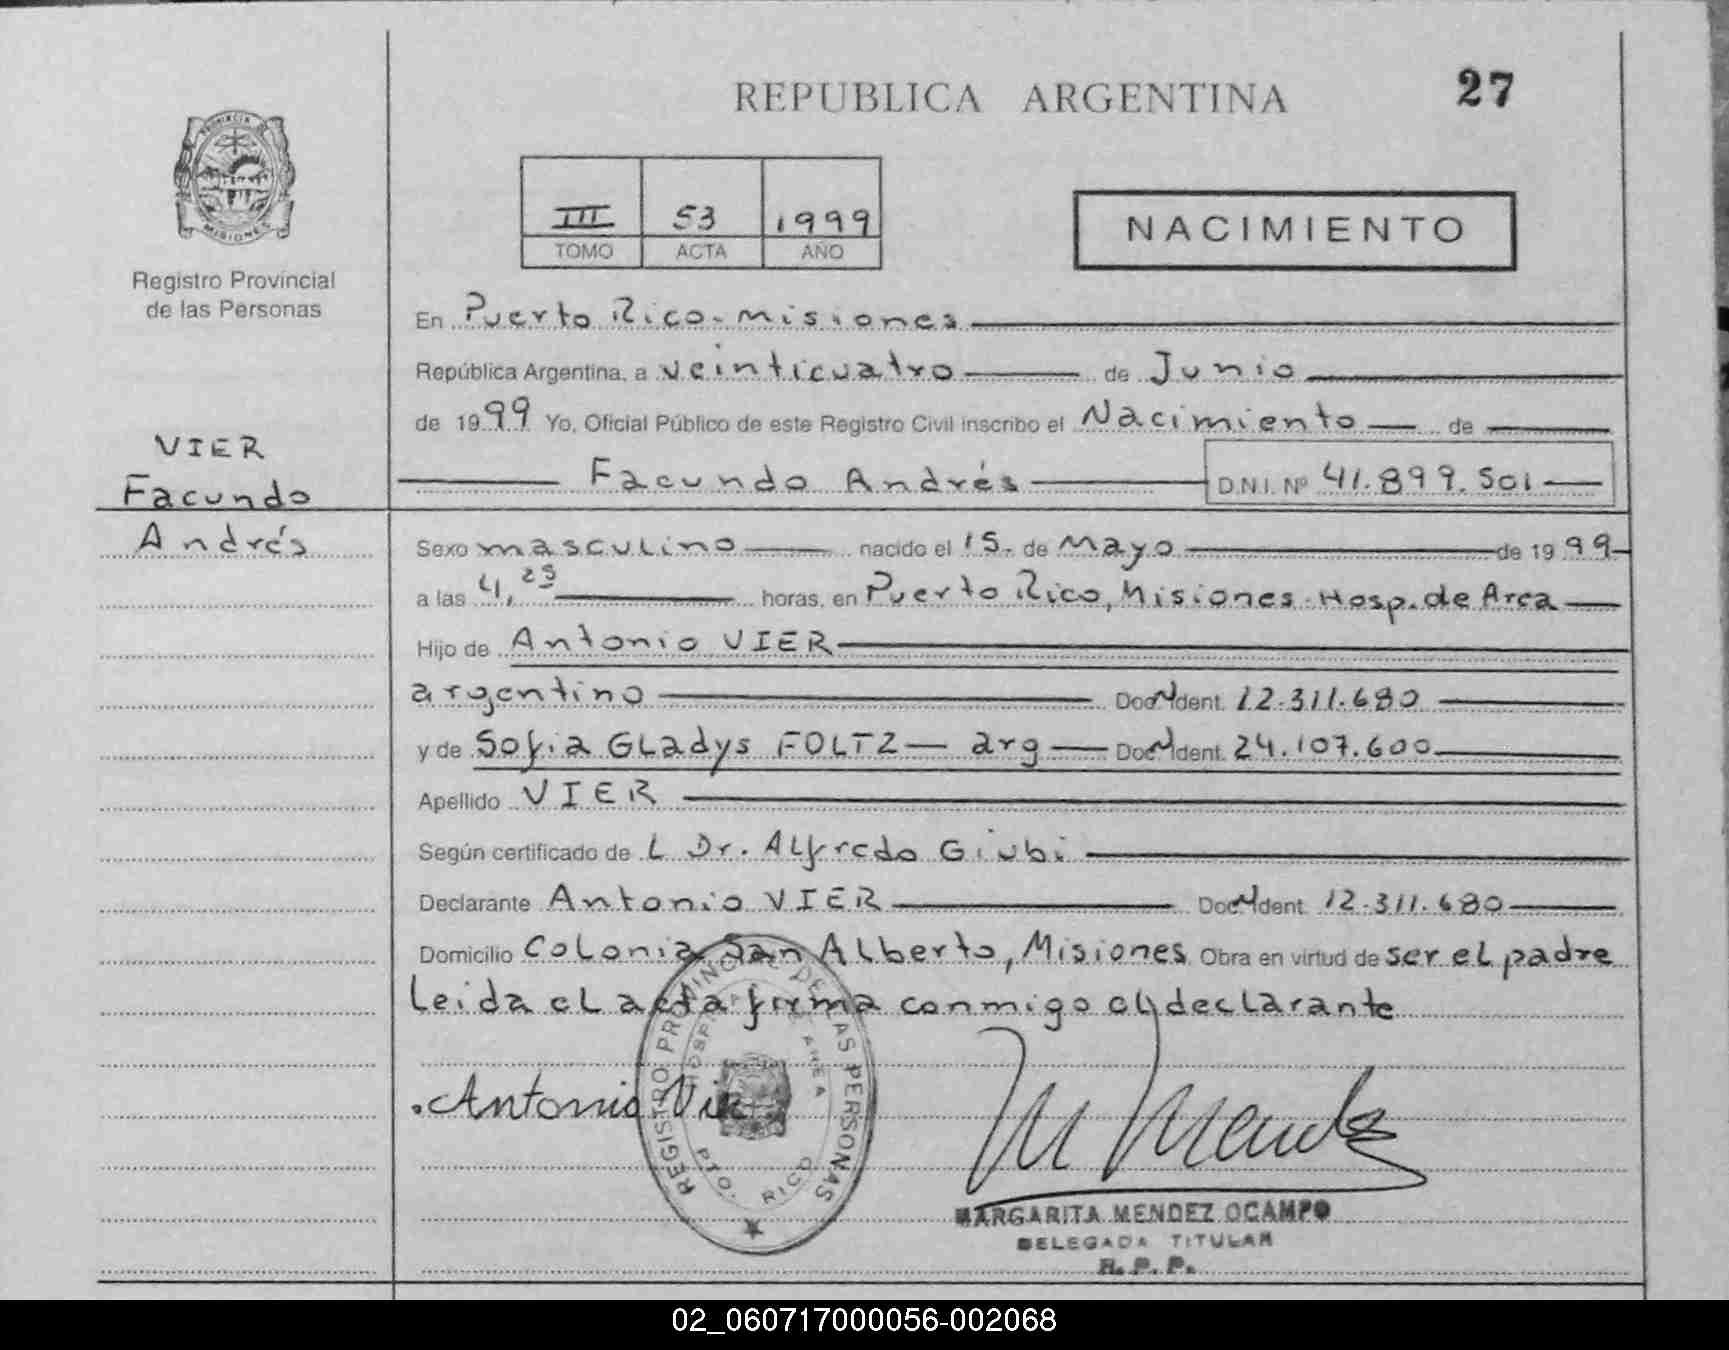 REPUBLICA ARGENTINA
27
PROVINCIA DE
MISIONES
Registro Provincial
de las Personas
III 53 1999
TOMO ACTA AÑO
NACIMIENTO
En Puerto Rico - Misiones
República Argentina, a veinticuatro de Junio
de 1999 Yo, Oficial Público de este Registro Civil inscribo el Nacimiento de
VIER
Facundo
Andrés
Facundo Andrés D.N.I. Nº 41.899.501
Sexo masculino nacido el 15 de Mayo de 1999
a las 4,25 horas, en Puerto Rico, Misiones - Hosp. de Area
Hijo de Antonio VIER
argentino Doc. Ident. 12.311.680
y de Sofia Gladys FOLTZ — arg — Doc. Ident. 24.107.600
Apellido VIER
Según certificado de L Dr. Alfredo Giubi
Declarante Antonio VIER Doc. Ident. 12.311.680
Domicilio Colonia San Alberto, Misiones Obra en virtud de ser el padre
Leida el acta firma conmigo el declarante
Antonio Vier
M Mendez
REGISTRO PROVINCIAL DE LAS PERSONAS
HOSPITAL DE AREA
PTO. RICO
MARGARITA MENDEZ OCAMPO
DELEGADA TITULAR
R. P. P.
02_060717000056-002068